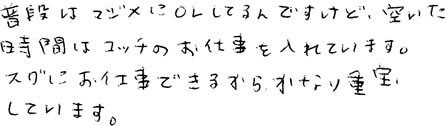 普段はマジメにOLしてるんですけど、空いた
時間はコッチのお仕事を入れています。
スグにお仕事できるから、かなり重宝
しています。